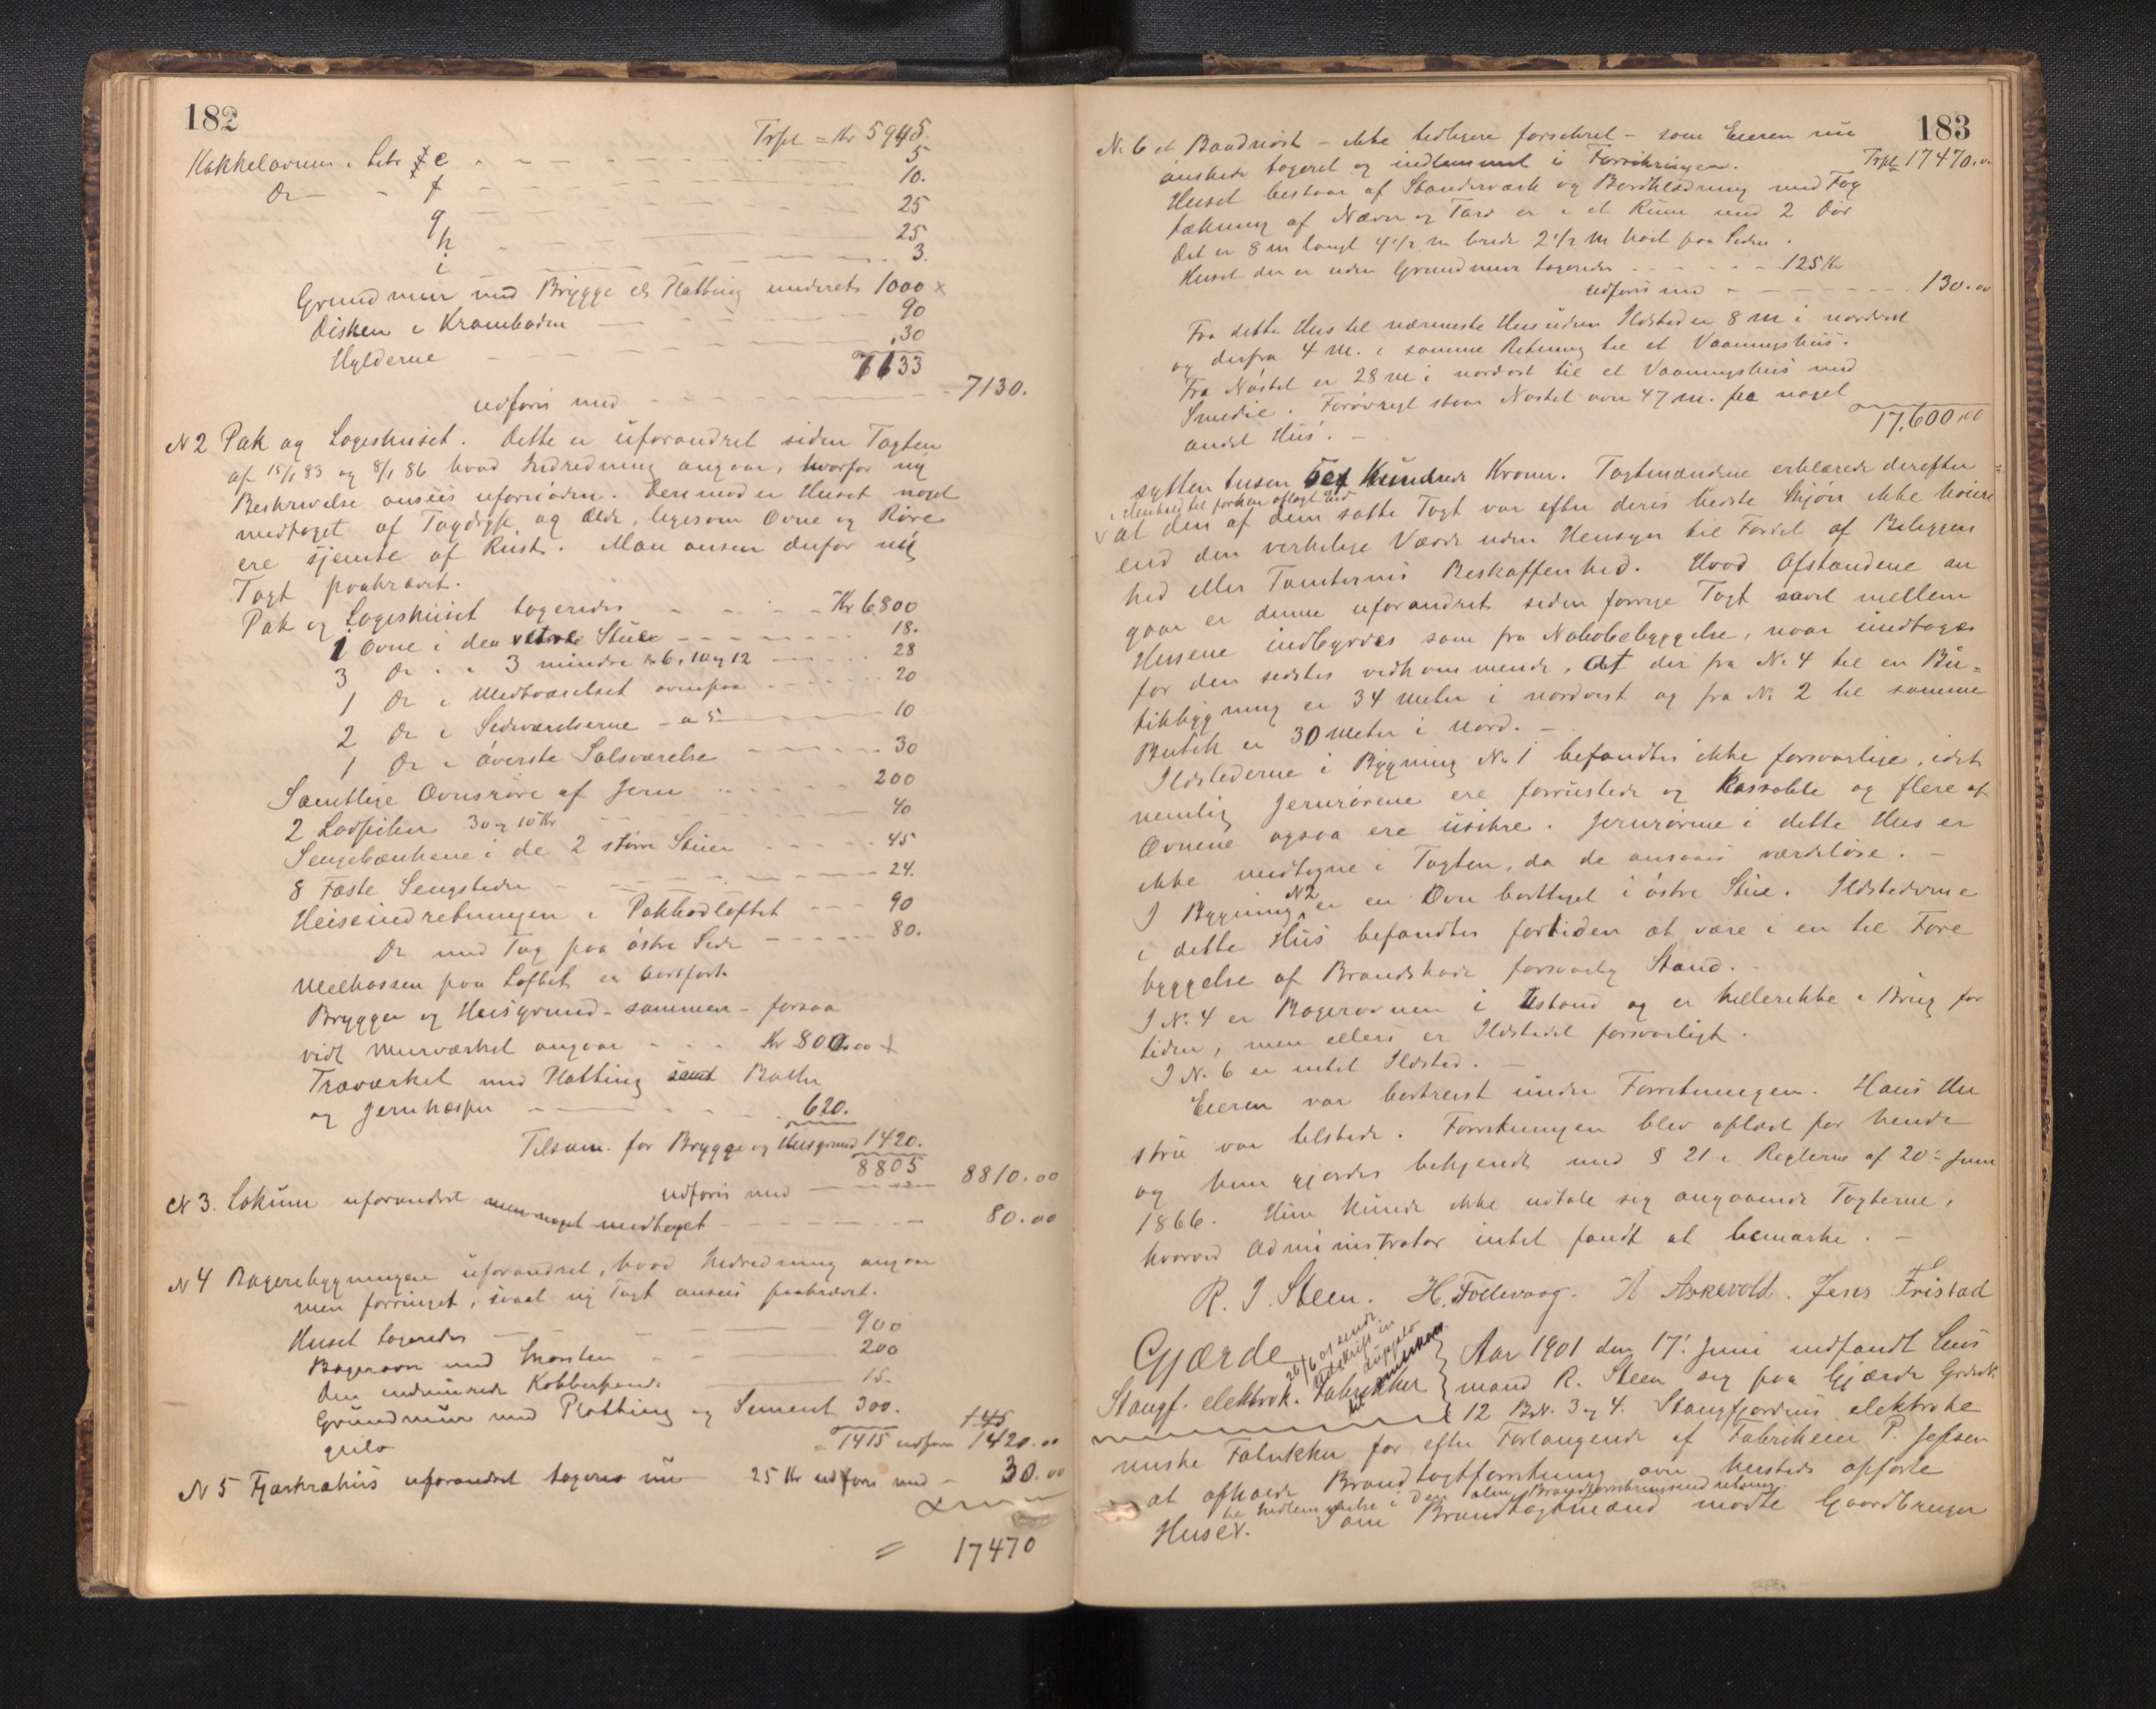 182
Trspt = Kr 5945.
Kakkelovnen i Litr e - - - - 5
Do - - f - - - - 10.
g - - - - 25
h - - - - 25
i - - - - 3.
Grundmur med Brygge & Platting underet 1000 x
Disken i Kramboden - - - - 90
Hylderne - - - - 30
7133
udføris med - - - - 7130.
N 2 Pak og Logishuset. Dette er uforandret siden Taxten
af 15/1 83 og 8/1 86 hvad Indredning angaar, hvorfor ny
Beskrivelse ansees ufornöden. Derimod er Huset noget
medtaget af Tagdryp og Ælde, ligesom Ovne og Röre
ere tjente af Rust. Man anser derfor ny
Taxt paakrævet.
Pak og Logishuset taxeredes - - - - Kr 6800
1 Ovne i den vestre Stue - - - - 18.
3 Do - " 3 mindre No 6, 10 og 12 - - - 28
1 Do i Midtværelset ovenpaa - - - - 20
2 Do i Sideværelserne - a 5 - 10
1 Do i överste Salsværelse - - - - 30
Samtlige Ovnsröre af Jern - - - - 200
2 Ladpiber 30 og 10 Kr - - - - 40
Sengebænkene i de 2 större Stuer - - - - 45
8 Faste Sengesteder - - - - 24.
Heiseindretningen i Pakbodloftet - - - 90
Do med Tag paa östre Side - - - - 80.
Melkassen paa Loftet er bortfört.
Bryggen og Husgrund - sammen - forsaa
vidt Murværket angaar - - - Kr 800.00 +
Træværket med Platting samt Bolter
og Jernhæsper - - - - 620.
Tilsam. for Brygge og Husgrund 1420.
8805
udføris med - - - - 8810.00
N 3. Lokum uforandret men noget medtaget - - - - 80.00
N 4 Bageribygningen uforandret, hvad Indredning angaar
men forringet, saaat ny Taxt ansees paakrævet.
Huset taxeredes - - - - 900
Bagerovn med Skorsten - - - - 200
Den indmurede Kobberpande - - - - 15.
Grundmur med Platting og Sement 300.
gulv
= 1415 udföres 1420.00
N 5 Fjærkræhus uforandret taxeres nu 25 Kr udføris med - 30.00
= 17470
183
No 6 et Baadnöst - ikke tidligere forsikret - som Eieren nu
önskede taxeret og indlemmet i Forsikringen. Trspt 17470.00
Huset bestaar af Standerværk og Bordklædning med Tag
tækning af Næver og Torv er i et Rum med 2 Dör
Det er 8 m langt 4 1/2 m bredt 2 1/2 m höit paa Siden.
Huset der er uden Grundmur taxeredes - - - - 125 Kr
udföris med - - - - 130.00
Fra dette Hus til nærmeste Hus uden Ildsted er 8 m i nordvest
og derfra 4 m. i samme Retning til et Vaaningshus.
Fra Nöstet er 28 m i nordost til et Vaaningshus med
Smedie. Forövrigt staar Nöstet over 47 m. fra noget
andet Hus. - 17,600.00
sytten tusen sex Hundrede Kroner. Taxtmændene erklærede derefter
i Henhold til forhen aflagt Eed
at den af dem satte Taxt var efter deres bedste Skjön ikke höiere
end den virkelige Værdi uden Hensyn til Fordel af Beliggen
hed eller Tomternes Beskaffenhed. Hvad Afstandene an
gaar er denne uforandret siden forrige Taxt saavel mellem
Husene indbyrdes som fra Nabobebyggelse, naar undtages
for den sidstes vedkommende, at der fra No 4 til en Bu=
tikbygning er 34 meter i nordvest og fra No 2 til samme
Butik er 30 meter i nord. -
Ildstederne i Bygning No 1 befandtes ikke forsvarlige, idet
nemlig Jernrörene ere forrustede og kassable og flere af
Ovnene ogsaa ere usikre. Jernrörene i dette Hus er
ikke medtagne i Taxten, da de ansaaes værdilöse. -
I Bygning N2 er en Ovn borttaget i östre Stue. Ildstederne
i dette Hus befandtes fortiden at være i en til Fore
byggelse af Brandskade forsvarlig Stand. -
I No 4 er Bagerovnen i Ustand og er hellerikke i Brug for
tiden, men ellers er Ildstedet forsvarligt.
I No 6 er intet Ildsted. -
Eieren var bortreist under Forretningen. Hans Hu
stru var tilstede. Forretningen blev oplæst for hende
og hun gjordes bekjendt med § 21 i Reglerne af 20de Juni
1866. Hun kunde ikke udtale sig angaaende Taxterne,
hvorved Administrator intet fandt at bemærke. -
R. J. Steen. H. Follevaag. A Askevold. Jens Fristad
Gjærde
Stangf. elektrok. Fabrikker
26/6 01 sendt
Udskrift in
duplo
til
Aar 1901 den 17. Juni indfandt Lens
mand R. Steen sig paa Gjærde Grdsk.
12 BrN. 3 og 4. Stangfjordens elektroke
miske Fabrikker for efter Forlangende af Fabrikeier P. Jebsen
at afholde Brandtaxtforretning over hersteds opförte
til Indlemmelse i den alm. Brandforsikringsindretning
Huse. Som Brandtaxtmænd mödte Gaardbruger